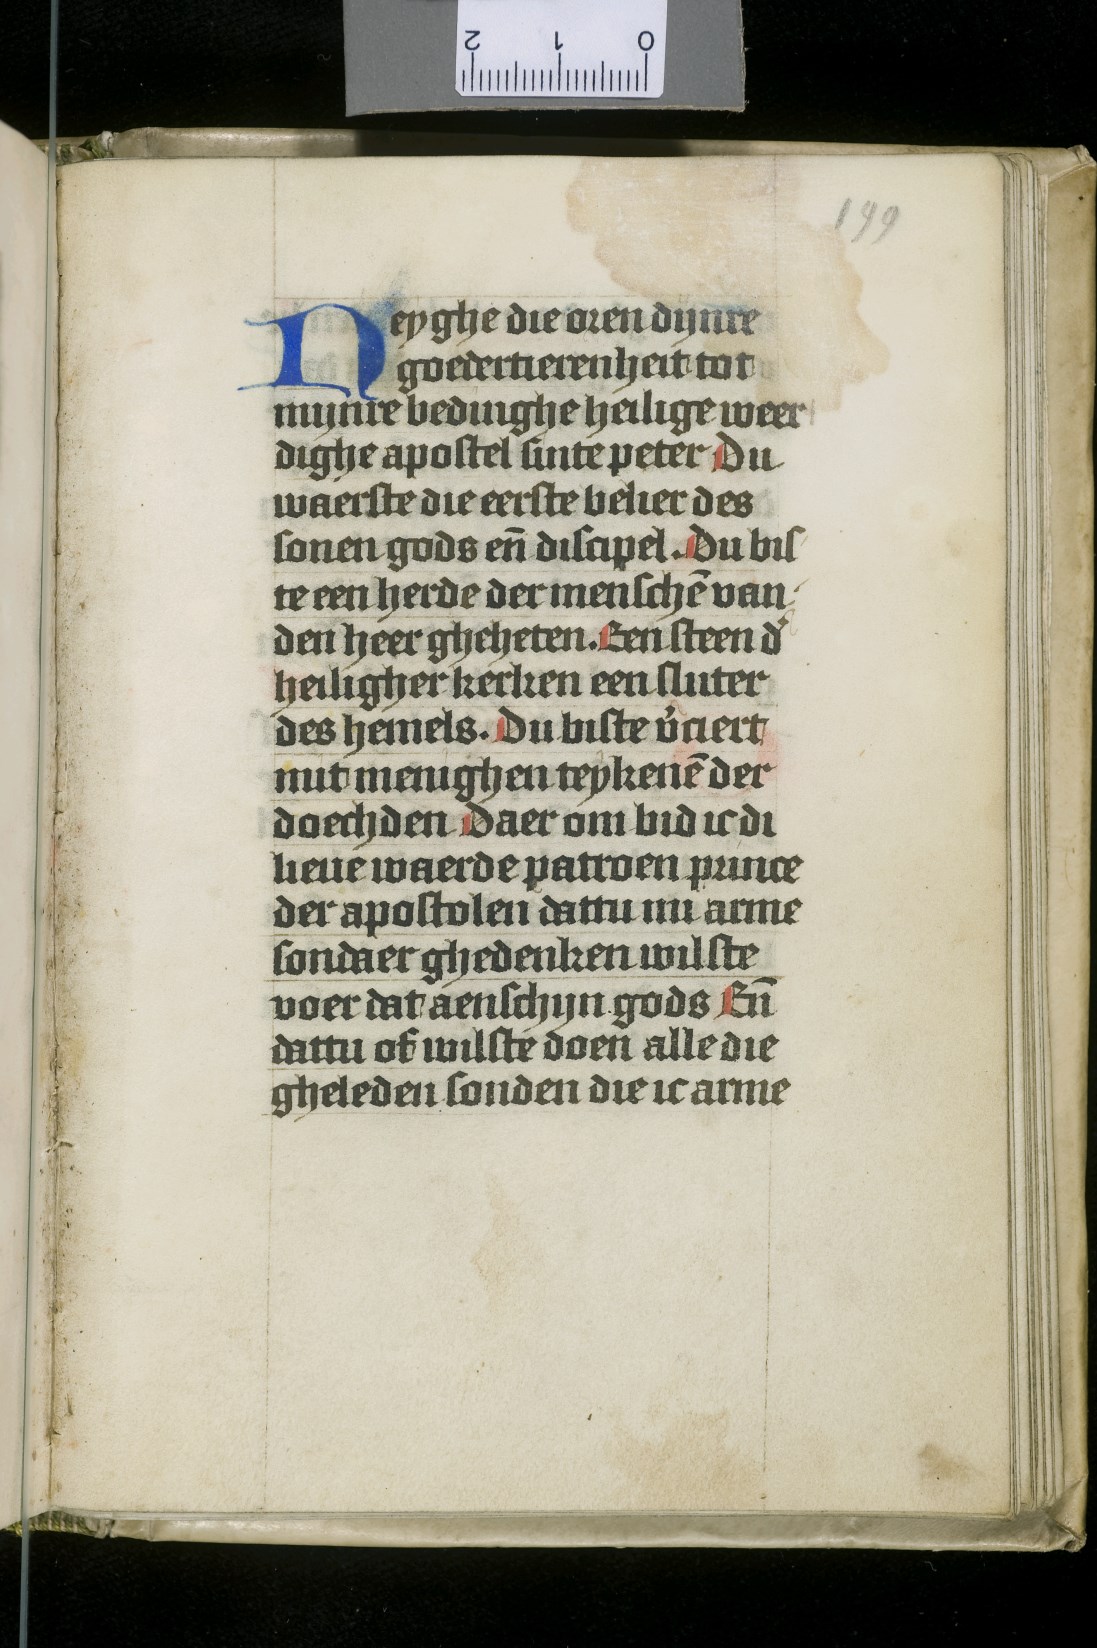 2 1 0
199
Neyghe die oren dijnre
goedertierenheit tot
mijnre bedinghe heilige weer
dighe apostel sinte peter Du
waerste die eerste belier des
sonen gods en̄ discipel. Du bis
te een herde der menschē van
den heer gheheten. Een steen d'
heiligher kerken een sluter
des hemels. Du biste v'ciert
mit menighen teykenē der
doechden Daer om bid ic di
lieue waerde patroen prince
der apostolen dattu mi arme
sondaer ghedenken wilste
voer dat aenschijn gods En̄
dattu of wilste doen alle die
gheleden sonden die ic arme